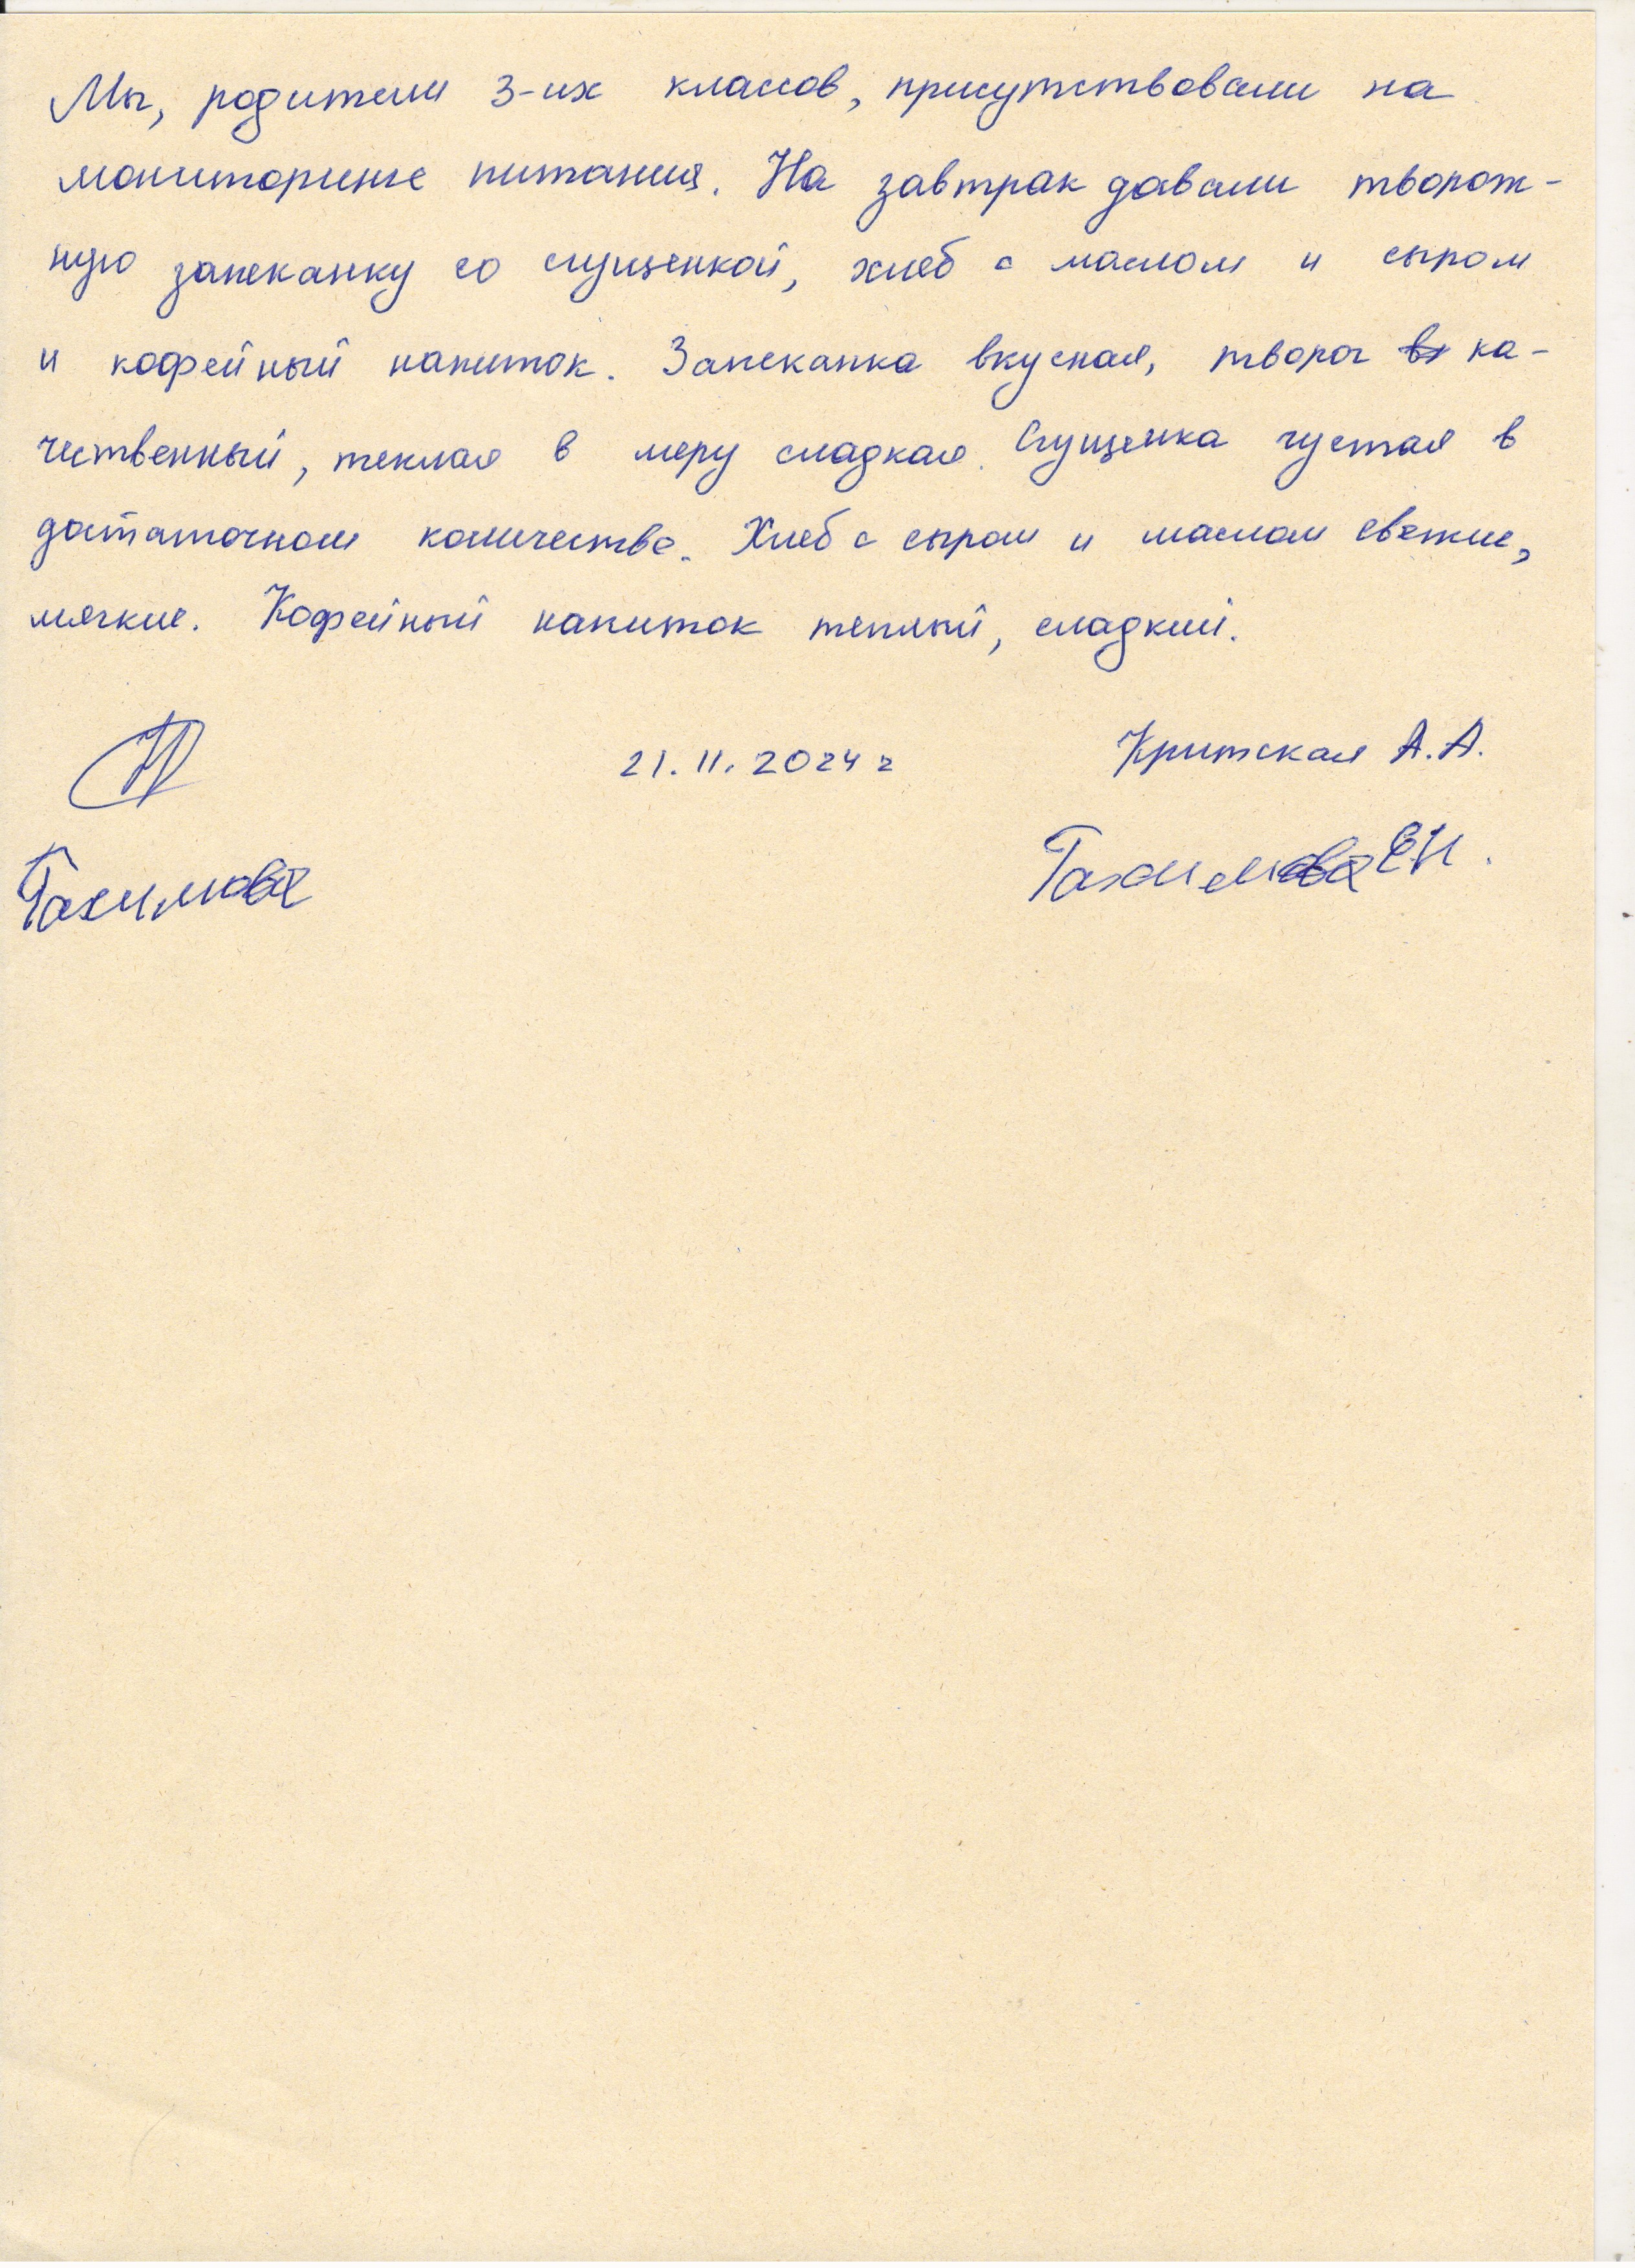 Мы, родители 3-их классов, присутствовали на
мониторинге питания. На завтрак давали творож-
ную запеканку со сгущенкой, хлеб с маслом и сыром
и кофейный напиток. Запеканка вкусная, творог ка-
чественный, теплая в меру сладкая. Сгущенка густая в
достаточном количестве. Хлеб с сыром и маслом свежие,
мягкие. Кофейный напиток теплый, сладкий.
21.11.2024 г Критская А.А.